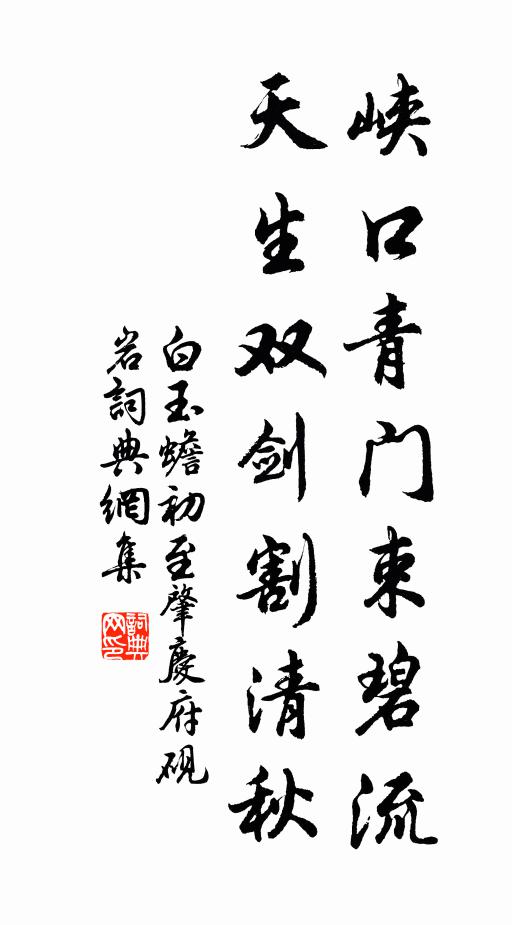 峡口青门束碧流
天生双剑割清秋
白玉蟾初至肇慶府砚
岩詞典網集
詞典网印